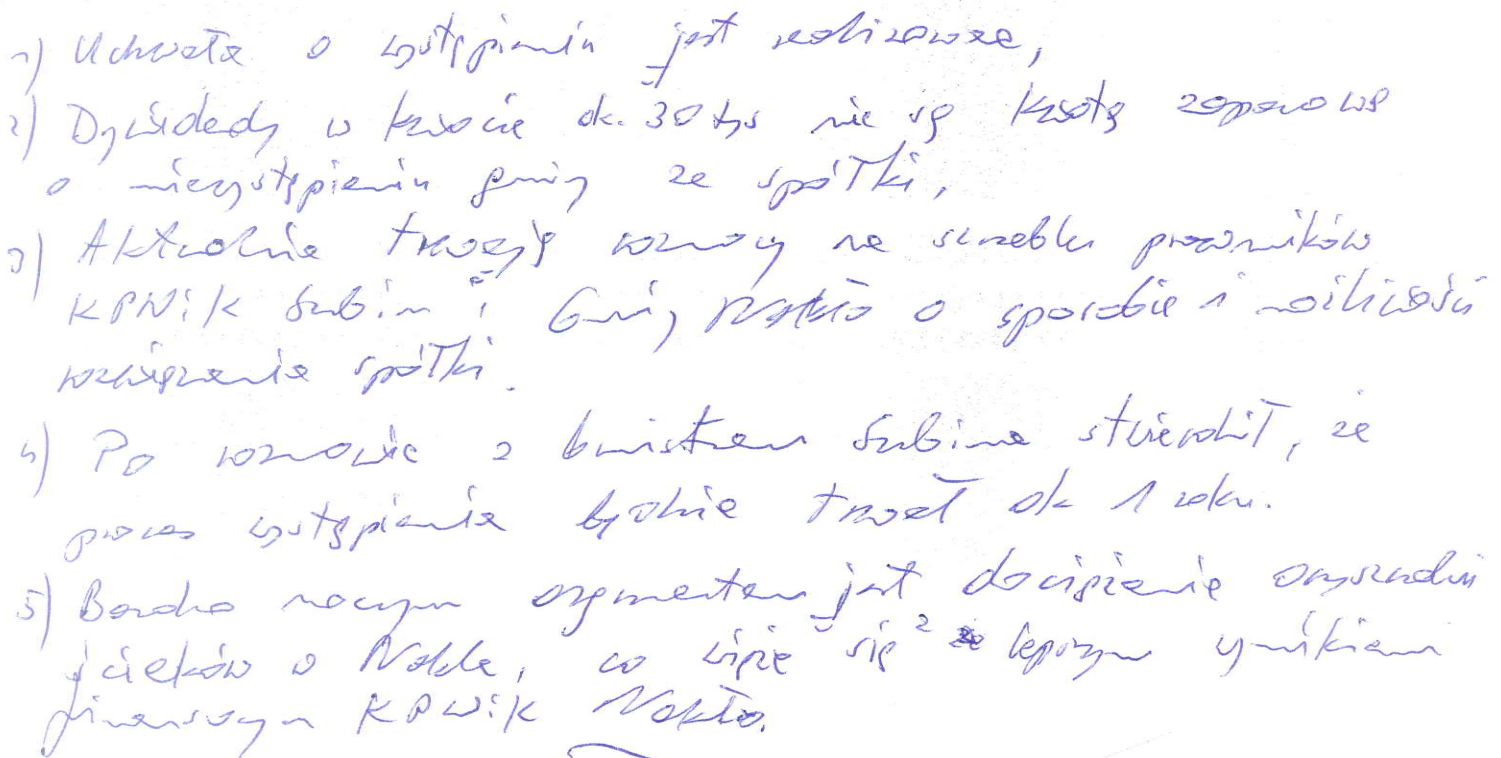 1) Uchwała o wystąpieniu jest realizowana,
2) Dywidendy w kwocie ok. 30 tys nie są kwotą zaporową
o niewystąpieniu gminy ze spółki,
3) Aktualnie trwają rozmowy na szczeblu prawników
KPWiK Szubin i Gminy Nakło o sposobie i możliwości
rozwiązania spółki.
4) Po rozmowie z burmistrzem Szubina stwierdził, że
proces wystąpienia będzie trwał ok 1 roku.
5) Bardzo mocnym argumentem jest dociążenie oczyszczalni
ścieków w Nakle, co wiąże się z lepszym wynikiem
finansowym KPWiK Nakło.